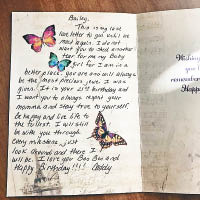 Bailey,
This is my last
love letter to you until we
meet again. I do not
want you to shed another
tear for me my Baby
girl for I am in a
better place. you are and will always
be the most precious jewel I was
given. It is your 21st birthday and
I want you to always respect your
momma and stay true to yourself.
Be happy and live life to
the fullest. I will still
be with you through
Every milestone, just
look around and there I
will be. I love you Boo Boo and
Happy Birthday!!!! Daddy
Wishing
you
remember
Happ